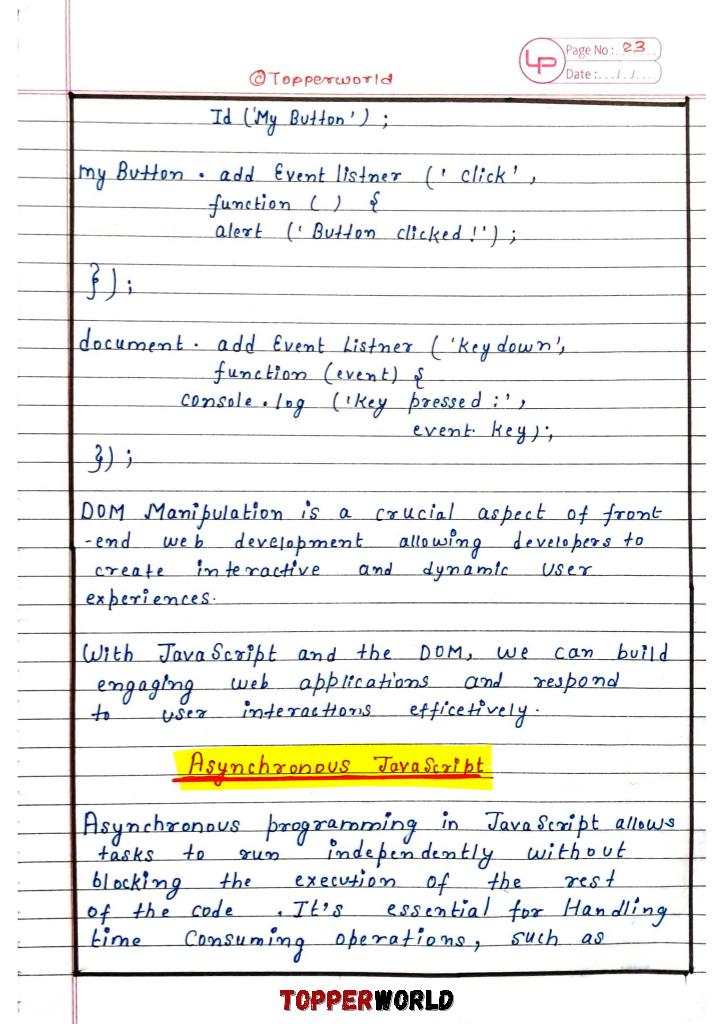 ©Topperworld
LP
Page No: 23
Date: ... / .. / ...
Id ('My Button') ;
my Button . add Event listner (' click' ,
function ( ) {
alert (' Button clicked !') ;
} ) ;
document . add Event Listner ( 'key down',
function (event) {
console . log ('key pressed :' ,
event . key) ;
}) ;
DOM Manipulation is a crucial aspect of front
-end web development allowing developers to
create interactive and dynamic user
experiences.
With JavaScript and the DOM, we can build
engaging web applications and respond
to user interactions efficetively.
Asynchronous JavaScript
Asynchronous programming in JavaScript allows
tasks to run independently without
blocking the execution of the rest
of the code . It's essential for Handling
time consuming operations, such as
TOPPERWORLD